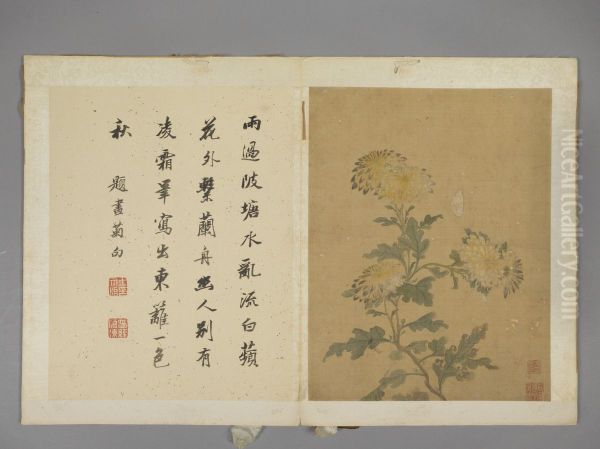 雨過陂塘水亂流白蘋
花外繫蘭舟幽人別有
凌霜筆寫出東籬一色
秋 題畫菊句
NiceArtGallery.com